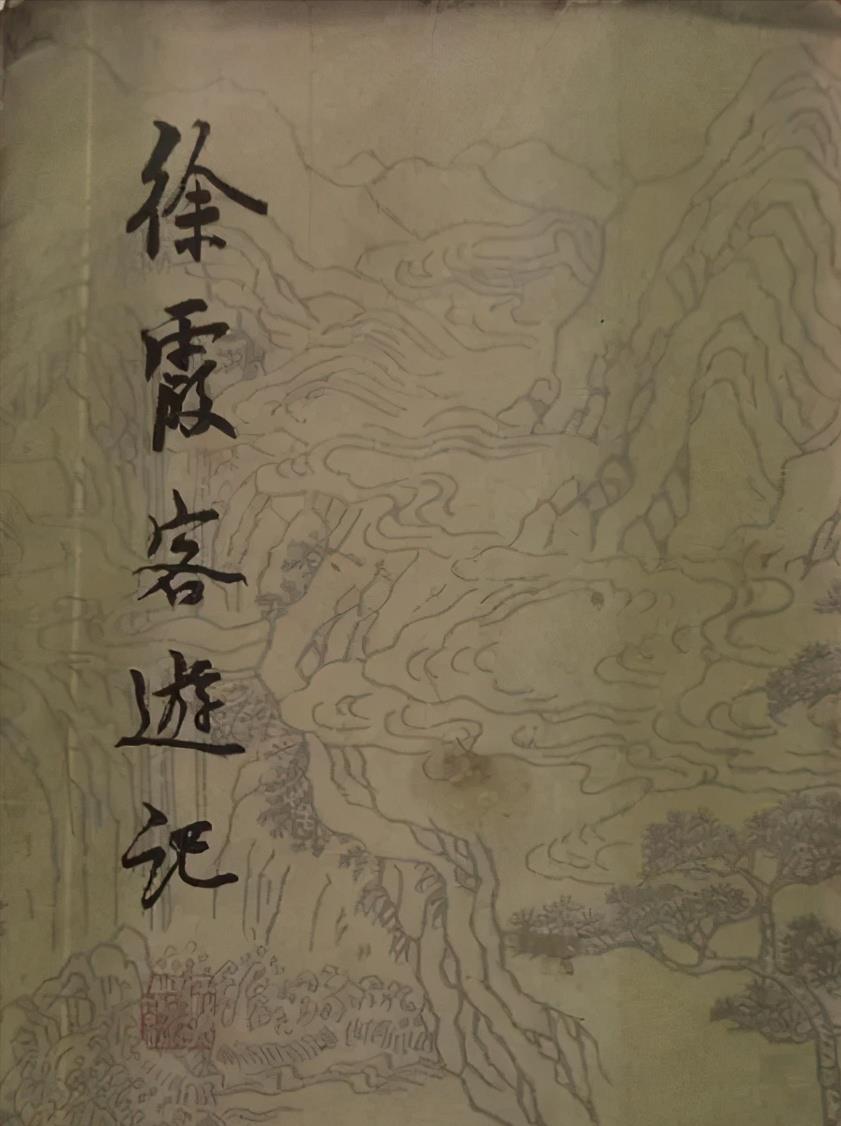 徐霞客遊記